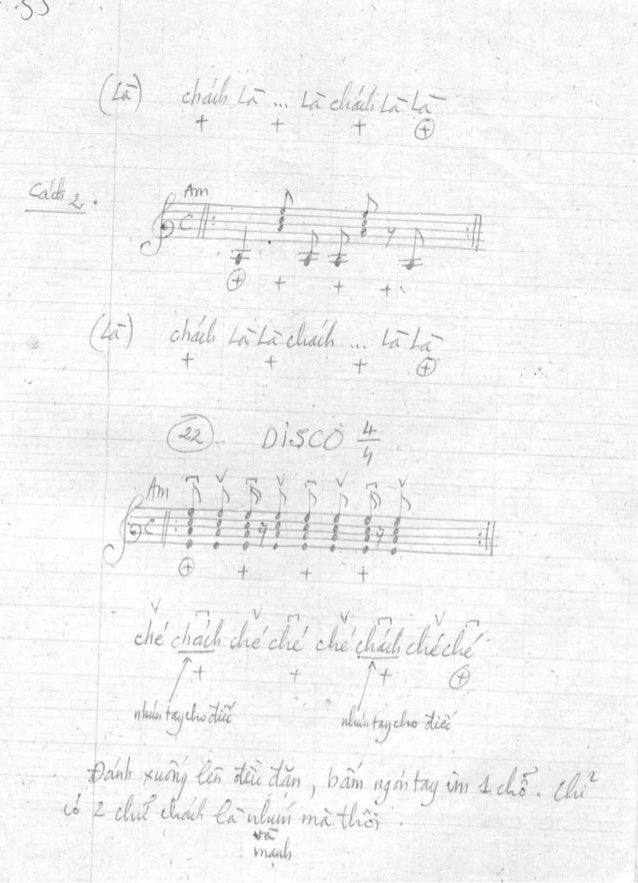 33
(Là) chách Là ... Là chách Là Là
+ + + +
Cách 2.
Am
C
+ + + +
(Là) chách Là Là chách ... Là Là
+ + + +
22 DISCO 4/4
Am
C
+ + + +
ché chách ché ché ché chách ché ché
+ + + +
nhún tay cho điếc nhún tay cho điếc
Đánh xuống lên đều đặn, bấm ngón tay im 1 chỗ. Chỉ
có 2 chữ chách là nhún mà thôi.
và
mạnh